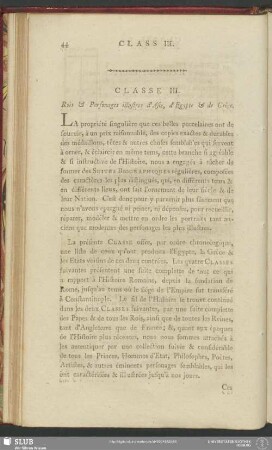 44 CLASS III.
CLASSE III.
Rois & Personages illustres d'Asie, d'Egypte & de Grèce.
LA propriété singulière que ces belles porcelaines ont de
fournir, à un prix raisonnable, des copies exactes & durables
des médaillons, têtes & autres choses semblables qui servent
à orner, & éclaircir en même tems, cette branche si agréable
& si instructive de l'Histoire, nous a engagés à tâcher de
former des SUITES BIOGRAPHIQUES régulières, composées
des caractères les plus distingués, qui, en différents tems &
en différents lieux, ont fait l'ornement de leur siècle & de
leur Nation. C'est donc pour y parvenir plus sûrement que
nous n'avons épargné ni peines, ni dépenses, pour recueillir,
réparer, modéler & mettre en ordre les portraits tant anciens
que modernes des personages les plus illustres.
La présente CLASSE offre, par ordre chronologique,
une liste de ceux qu'ont produits l'Egypte, la Grèce &
les Etats voisins de ces deux contrées. Les quatre CLASSES
suivantes présentent une suite complette de tout ce qui
a rapport à l'Histoire Romaine, depuis la fondation de
Rome, jusqu'au tems où le siège de l'Empire fut transféré
à Constantinople. Le fil de l'Histoire se trouve continué
dans les deux CLASSES suivantes, par une suite complette
des Papes & de tous les Rois, ainsi que de toutes les Reines,
tant d'Angleterre que de France; &, quant aux époques
de l'Histoire plus récentes, nous nous sommes attachés à
les caractériser par une collection suivie & considérable
de tous les Princes, Hommes d'Etat, Philosophes, Poëtes,
Artistes, & autres éminents personages semblables, qui les
ont caractérisées & illustrées jusqu'à nos jours.
SLUB